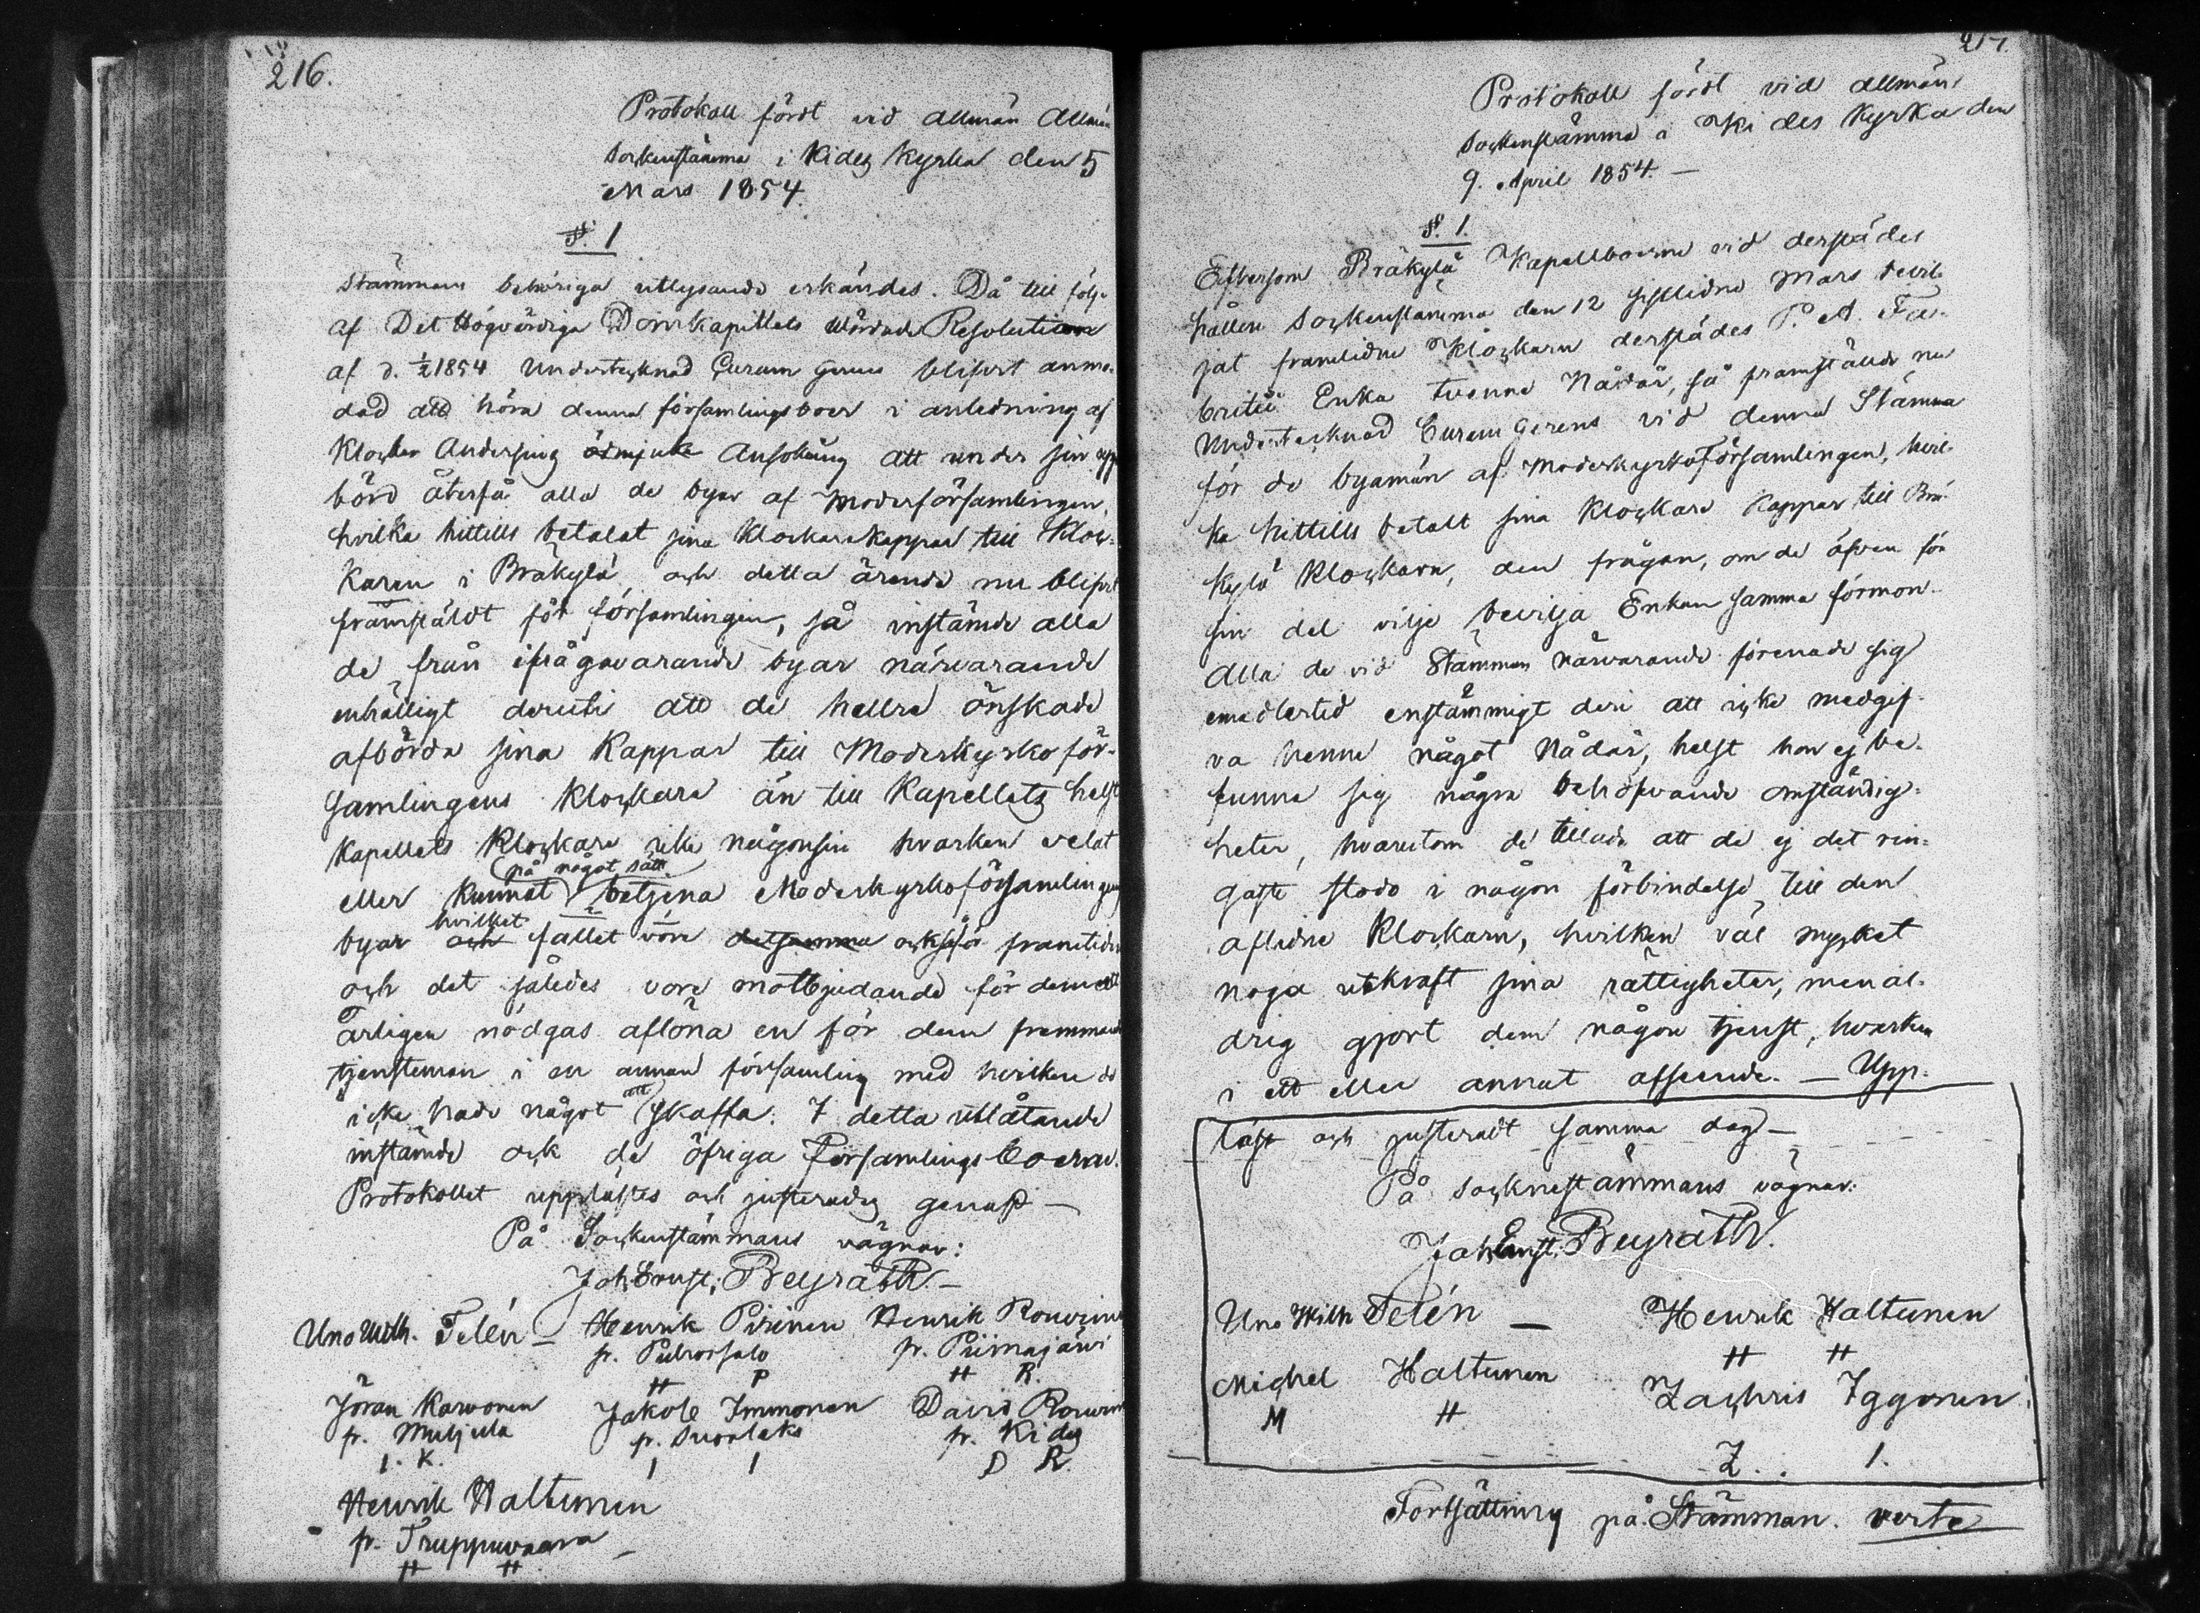 216.
Protokoll fördt vid allmän Allmän
Sockenstämma i Kides Kyrka den 5
Mars 1854.
§. 1
Stämmans behöriga utlysande erkändes. Då till följe
af Det Högvördiga Domkapitlets Wördade Resolution
af d. ½ 1854 Undertecknad Curam Gerens blifvit anmo-
dad att höra denna församlingsboer i anledning af
Klockar Anderssins ödmjuka Ansökning att under sin upp
börd återfå alla de byar af Moderförsamlingen,
hvilka hittills betalat sina Klockarekappar till Kloc-
karen i Bräkylä, och detta ärende nu blifvit
framstäldt för församlingen, så instämde alla
de från ifrågavarande byar närvarande
enhälligt deruti att de hellre önskade
afbörda sina Kappar till Moderkyrkoför-
samlingens Klockare än till Kapellets helst
Kapellets Klockare icke någonsin hvarken velat
på något sätt
eller kunnat betjena Moderkyrkoförsamlingens
hvilket
byar och fallet vore detsamma också för framtiden
och det således vore motbjudande för dem att
årligen nödgas aflöna en för dem främmande
tjensteman i en annan församling med hvilken de
icke hade något att skaffa. I detta utlåtande
instämde ock de öfriga Församlings boerne.
Protokollet upplästes och justerades genast —
På Sockenstämmans vägnar:
Joh. Ernst. Beyrath. —
Uno Wilh. Telén — Henrik Pirinen Henrik Rouvinen
fr. Puhossalo fr. Piimajärvi
H P H R.
Jöran Karvonen Jakob Immonen David Rouvinen
fr. Muljula fr. Suorlaks fr. Kides
I. K. I I D R.
Henrik Haltunen
fr. Truppuvaara —
H H
217.
Protokoll fördt vid allmän
Sockenstämma i Kides Kyrka den
9. April 1854. —
§. 1.
Eftersom Bräkylä Kapellboerne vid derstädes
hållen Sockenstämma den 12 sistlidne Mars bevil-
jat framlidne Klockaren derstädes P. A. Fa-
britii Enka tvenne Nådår, så framstälde nu
Undertecknad Curam Gerens vid denna Stämma
för de byamän af Moderkyrkoförsamlingen, hvil-
ka hittills betalt sina Klockare Kappar till Brä-
kylä Klockaren, den frågan, om de äfven för
sin del vilje bevilja Enkan samma förmon.
Alla de vid Stämman närvarande förenade sig
emedlertid enstämmigt deri att icke medgif-
va henne något Nådår, helst hon ej be-
funne sig i några behöfvande omständig-
heter, hvarutom de tillade att de ej det rin-
gaste stodo i någon förbindelse till den
aflidne Klockaren, hvilken väl mycket
noga utkräft sina rättigheter, men al-
drig gjort dem någon tjenst, hvarken
i ett eller annat afseende. — Upp-
läst och justeradt samma dag —
På Socknestämmans vägnar:
Joh. Ernst. Beyrath.
Uno Wilh Telén — Henrik Haltunen
H H
Michel Haltunen Zachris Iggonen
M H
Z. I.
Fortsättning på Stämman. verte